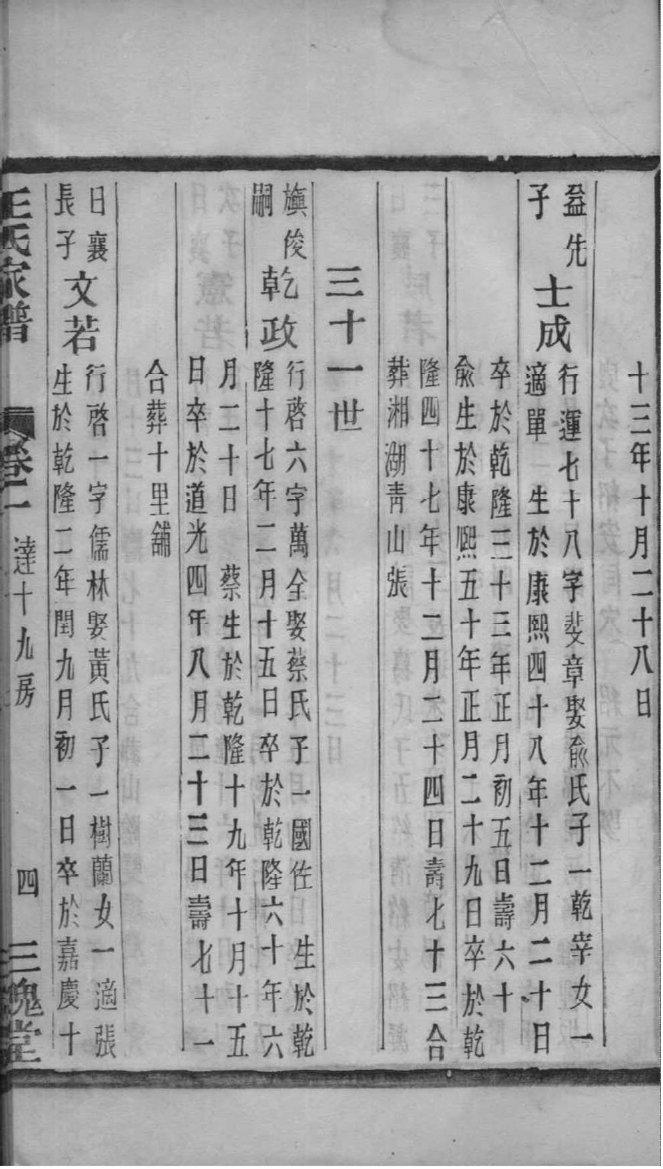 十三年十月二十八日
益先
子
士成
行運七十八字斐章娶俞氏子一乾宰女一
適單　生於康熙四十八年十二月二十日
卒於乾隆三十三年正月初五日壽六十
俞生於康熙五十年正月二十九日卒於乾
隆四十七年十二月二十四日壽七十三合
葬湘湖青山張
三十一世
旗俊
嗣
乾政
行啓六字萬全娶蔡氏子一國佐　生於乾
隆十七年二月十五日卒於乾隆六十年六
月二十日　蔡生於乾隆十九年十月十五
日卒於道光四年八月二十三日壽七十一
合葬十里舖
日襄
長子
文若
行啓一字儒林娶黃氏子一樹蘭女一適張
生於乾隆二年閏九月初一日卒於嘉慶十
王氏家譜　卷二　達十九房　四　三槐堂